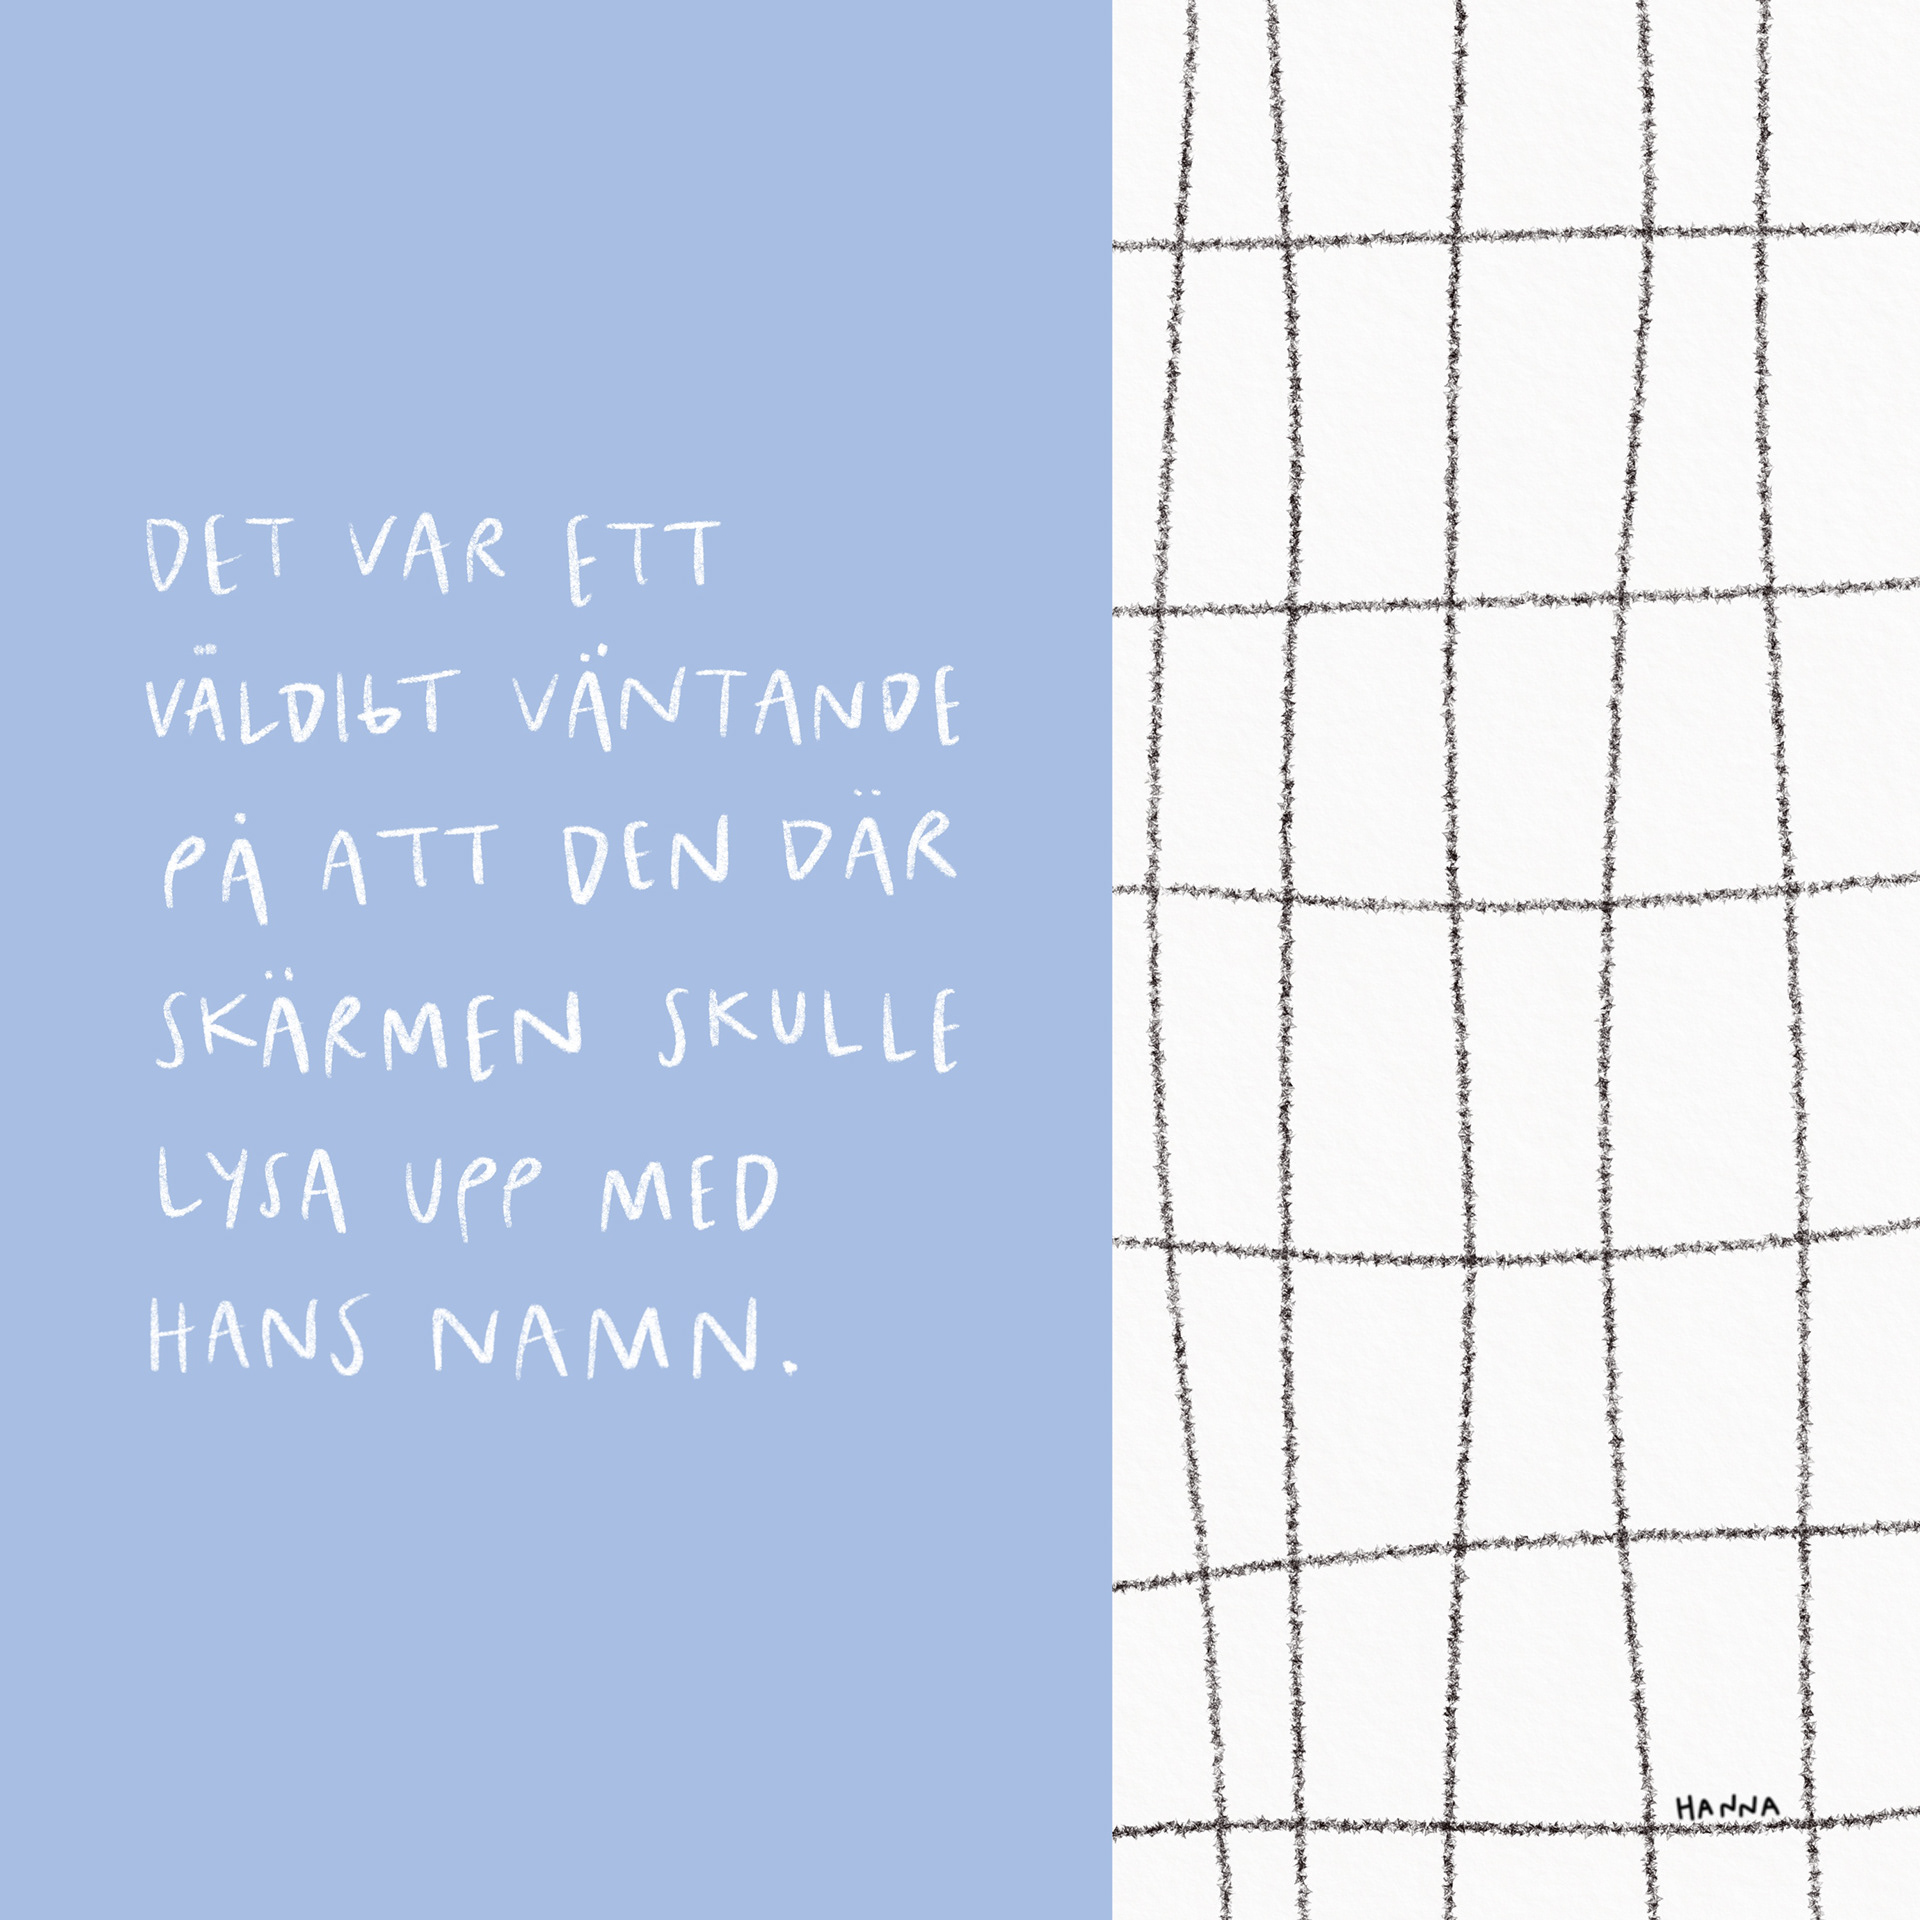 DET VAR ETT
VÄLDIGT VÄNTANDE
PÅ ATT DEN DÄR
SKÄRMEN SKULLE
LYSA UPP MED
HANS NAMN.
HANNA